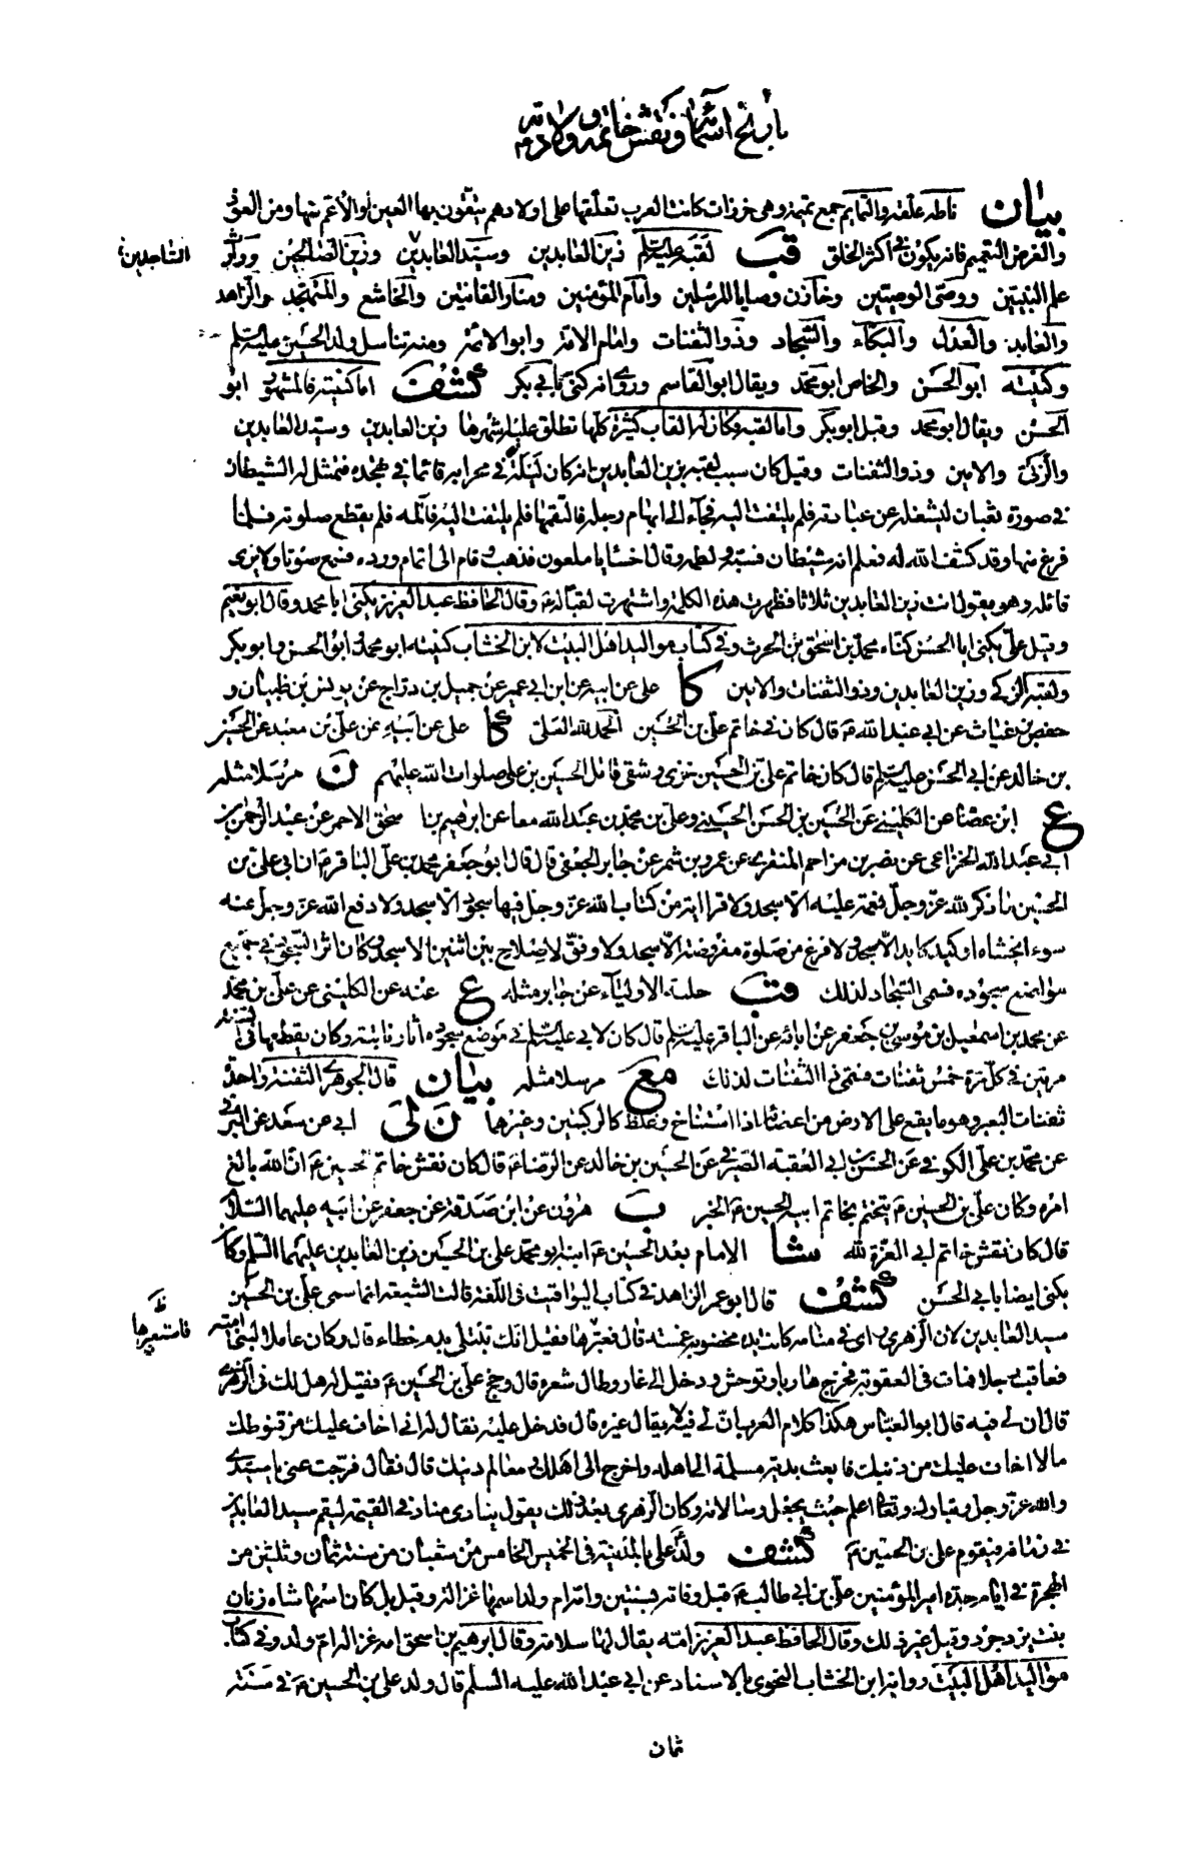 باب تاريخ اسمائه ونقش خاتمه وولادته
بيان ناطه علقه والتمايم جمع تميمة وهى خرزات كانت العرب تعلقها على اولادهم يتقون بها العين او الاعم منها ومن العوذ
والغرض التعميم فانه يكون فى اكثر الخلق قب لقبه عليه السلم زين العابدين وسيد العابدين وزين الصالحين ووارث
الساجدين
علم النبيين ووصى الوصيين وخازن وصايا المرسلين وامام المؤمنين ومنار القانتين والخاشع والمتهجد والزاهد
والعابد والعدل والبكاء والسجاد وذو الثفنات وامام الامة وابو الائمة ومنه تناسل ولد الحسين عليه السلم
وكنيته ابو الحسن والخاص ابو محمد ويقال ابو القاسم وروى انه كنى بابى بكر كشف اما كنيته فالمشهور ابو
الحسن ويقال ابو محمد وقيل ابو بكر واما لقبه فكان له القاب كثيرة كلها تطلق عليه اشهرها زين العابدين وسيد العابدين
والزكى والامين وذو الثفنات وقيل كان سبب لقبه بزين العابدين انه كان ليلة فى محرابه قائما فى تهجده فتمثل له الشيطان
فى صورة ثعبان ليشغله عن عبادته فلم يلتفت اليه فجاء الى ابهام رجله فالتقمها فلم يلتفت اليه فآلمه فلم يقطع صلوته فلما
فرغ منها وقد كشف الله له فعلم انه شيطان فسبه ولطمه وقال اخسأ يا ملعون فذهب وقام الى اتمام ورده فسمع صوتا ولا يرى
قائله وهو يقول انت زين العابدين ثلاثا فظهرت هذه الكلمة واشتهرت لقبا له ع وقال الحافظ عبد العزيز يكنى ابا محمد وقال ابو نعيم
وقيل على يكنى ابا الحسن كناه محمد بن اسحق بن الحرث وفى كتاب مواليد اهل البيت لابن الخشاب كنيته ابو محمد وابو الحسن وابو بكر
ولقبه الزكى وزين العابدين وذو الثفنات والامين كا على عن ابيه عن ابن ابى عمير عن جميل بن دراج عن يونس بن ظبيان و
حفص بن غياث عن ابى عبد الله ع قال كان فى خاتم على بن الحسين الحمد لله العلى كا على عن ابيه عن على بن معبد عن الحسين
بن خالد عن ابى الحسن عليه السلم قال كان خاتم على بن الحسين خزى وشقى قاتل الحسين بن على صلوات الله عليهم ن مرسلا مثله
ع ابن عصام عن الكلينى عن الحسين بن الحسن الحسينى وعلى بن محمد بن عبد الله معا عن ابراهيم بن اسحق الاحمر عن عبد الرحمن بن
ابى عبد الله الخزاعى عن نصر بن مزاحم المنقرى عن عمرو بن شمر عن جابر الجعفى قال قال ابو جعفر محمد بن على الباقر ع ان ابى على بن
الحسين ما ذكر لله عز وجل نعمة عليه الا سجد ولا قرا اية من كتاب الله عز وجل فيها سجود الا سجد ولا دفع الله عز وجل عنه
سوء يخشاه او كيد كايد الا سجد ولا فرغ من صلوة مفروضة الا سجد ولا وفق لاصلاح بين اثنين الا سجد وكان اثر السجود فى جميع
مواضع سجوده فسمى السجاد لذلك قب حلية الاولياء عن جابر مثله ع عنه عن الكلينى عن على بن محمد
عن محمد بن اسمعيل بن موسى بن جعفر عن ابائه عن الباقر عليه السلم قال كان لابى عليه السلم فى موضع سجوده آثار ناتية وكان يقطعها فى السنة
مرتين فى كل مرة خمس ثفنات فسمى ذا الثفنات لذلك مع مرسلا مثله بيان قال الجوهرى الثفنة واحدة
ثفنات البعير وهو ما يقع على الارض من اعضائه اذا استناخ وغلظ كالركبتين وغيرهما ن لى ابى عن سعد عن البرقى
عن محمد بن على الكوفى عن الحسن بن ابى العقبة الصيرفى عن الحسين بن خالد عن الرضا ع قال كان نقش خاتم الحسين ع ان الله بالغ
امره وكان على بن الحسين ع يتختم بخاتم ابيه الحسين ع الخبر ب هرون عن ابن صدقة عن جعفر عن ابيه عليهما السلام
قال كان نقش خاتم ابى العزة لله شا الامام بعد الحسين ع ابنه ابو محمد على بن الحسين زين العابدين عليهما السلم وكان
يكنى ايضا بابى الحسن كشف قال ابو عمر الزاهد فى كتاب اليواقيت فى اللغة قالت الشيعة انما سمى على بن الحسين
سيد العابدين لان الزهرى راى فى منامه كانت يده مخضوبة غمسة قال فعبرها فقيل انك تبتلى بدم خطاء قال وكان عاملا لبنى امية
فاستعبرها ظ
فعاقب رجلا فمات فى العقوبة فخرج هاربا وتوحش ودخل الى غار وطال شعره قال وحج على بن الحسين ع فقيل له هل لك فى الزهرى
قال ان لى فيه قال ابو العباس هكذا كلام العرب ان لى فيه لا يقال غيره قال فدخل عليه فقال له انى اخاف عليك من قنوطك
ما لا اخاف عليك من ذنبك فابعث بدية مسلمة الى اهله واخرج الى اهلك ومعالم دينك قال فقال فرجت عنى يا سيدى
والله عز وجل وتبارك وتعالى اعلم حيث يجعل رسالاته وكان الزهرى بعد ذلك يقول ينادى مناد فى القيمة ليقم سيد العابدين
فى زمانه فيقوم على بن الحسين ع كشف ولد على بالمدينة فى الخميس الخامس من شعبان من سنة ثمان وثلثين من
الهجرة فى ايام جده امير المؤمنين على بن ابى طالب ع قبل وفاته بسنتين وامه ام ولد اسمها غزالة وقيل بل كان اسمها شاه زنان
بنت يزدجرد وقيل غير ذلك وقال الحافظ عبد العزيز امه يقال لها سلامة وقال ابرهيم بن اسحق امه غزالة ام ولد وفى كتاب
مواليد اهل البيت رواية ابن الخشاب النحوى بالاسناد عن ابى عبد الله عليه السلم قال ولد على بن الحسين ع فى سنة
ثمان